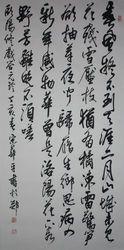 春風疑不到天涯二月山城未見
花殘雪壓枝猶有橘凍雷驚笋
欲抽芽夜聞歸雁生鄉思病入
新年感物華曾是洛陽花下客
野芳雖晚不須嗟
歐陽修戲答元珍 丁亥春